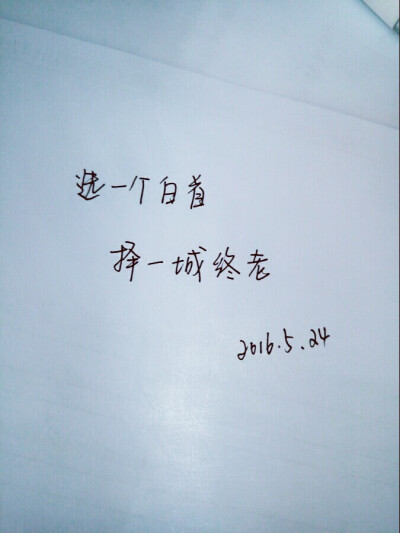 选一个白首
择一城终老
2016.5.24